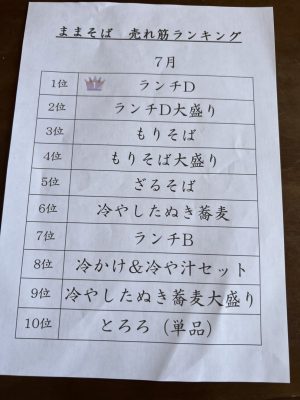 ままそば 売れ筋ランキング
7月
1位 ランチD
2位 ランチD大盛り
3位 もりそば
4位 もりそば大盛り
5位 ざるそば
6位 冷やしたぬき蕎麦
7位 ランチB
8位 冷かけ＆冷や汁セット
9位 冷やしたぬき蕎麦大盛り
10位 とろろ（単品）